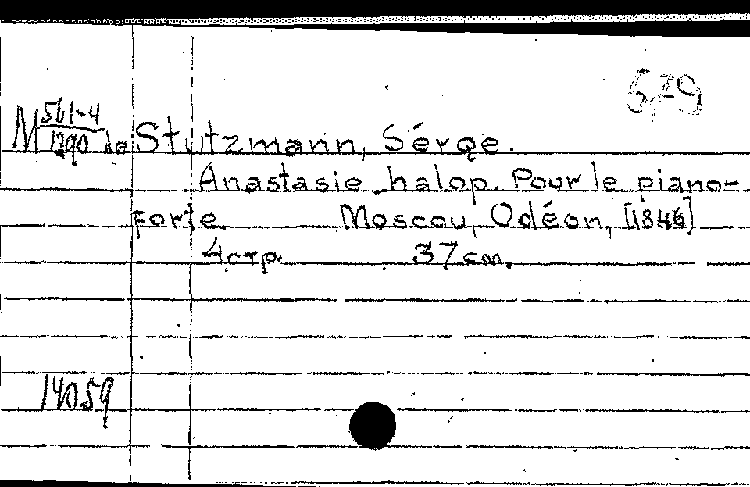 579
M 561-4
1290 de Stutzmann, Sérge.
Anastasie halop. Pour le piano-
forte. Moscou, Odéon, [1846]
4 стр. 37 см.
14059